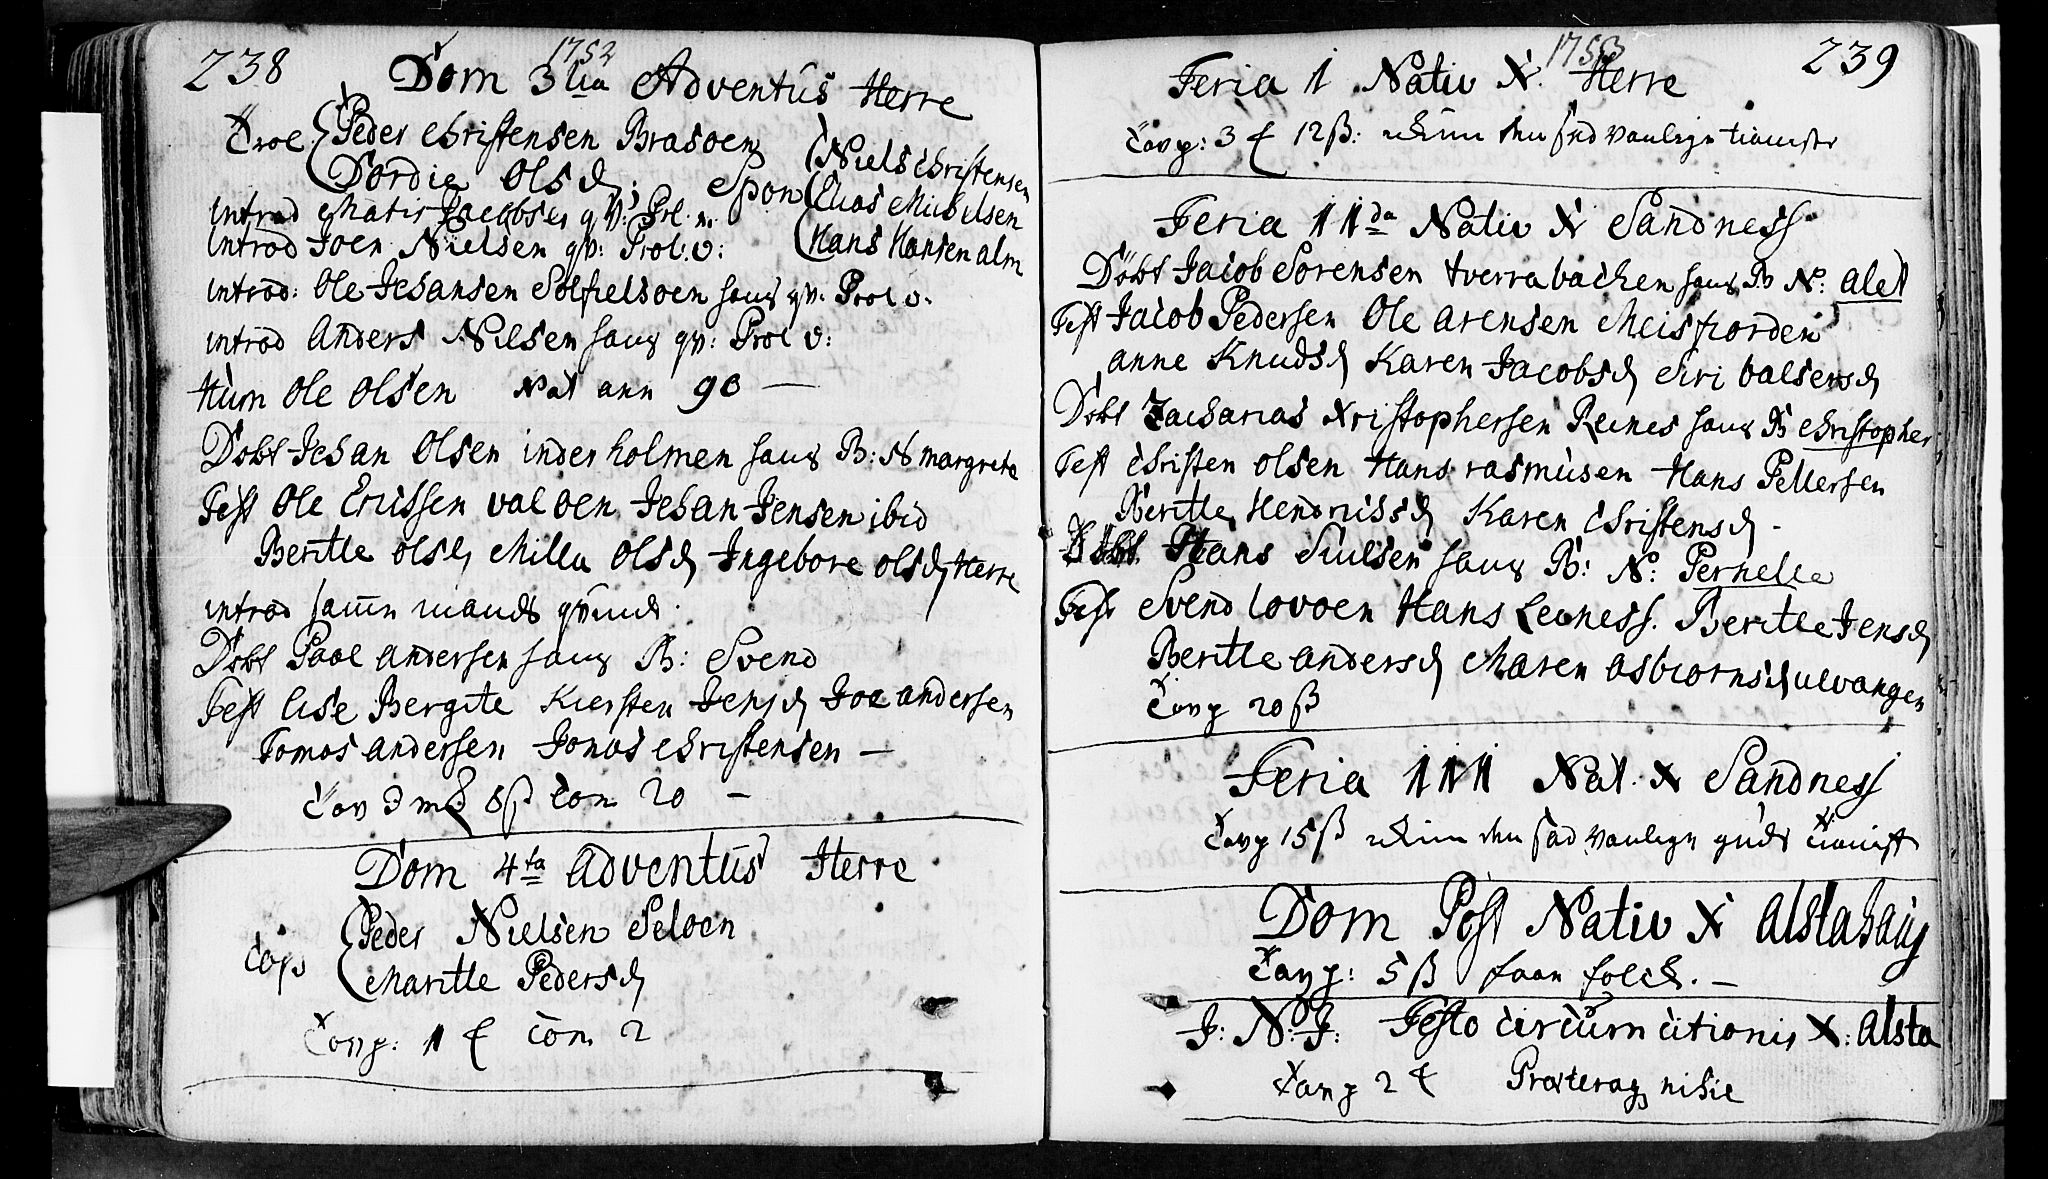 238
1752
Dom 3tia Adventûs Herre
Troe Peder Christensen Brasoen
Dordie Olsd: Spon Niels Christensen
Elias Michelsen
Hans Hansen alm
introd Matis Jacobsen qv: Prol. v.
introd Joen Nielsen qv: Prol. v:
introd: Ole Johansen Solfielsoen hans qv. Prol v.
introd Anders Nielsen hans qv: Prol v:
Hum Ole Olsen Nat ann 90 —
Døbt Johan Olsen inderholmen hans B: N margrete
Test Ole Erichsen valoen Johan Jensen ibid
Beritte olsd, Milla Olsd Ingeborr olsd Herre
introd samme mands qvinde.
Døbt Paal andersen hans B: Svend
Test Lise Bergite Kiersten Jensd Joe andersen
Tomas andersen Jonas christensen —
Tav 3 m 8 ß Com 20 —
Dom 4ta adventûs Herre
Cop Peder Nielsen Seloen
Maritte Pedersd
Tavp: 1 ₤ Com 2
239
1753
Feria 1 Nativ X. Herre
Tavp: 3 ₤ 12 ß:
Feria 11da Nativ X Sandness
Døbt Jacob Sorensen tverrabachen hans B N: alet
Test Jacob Pedersen Ole arensen Meisfiorden
anne Knudsd Karen Jacobsd Siri balsersd
Døbt Zacharias Xristophersen Reines hans B christopher
Test christen olsen Hans rasmusen Hans Pettersen
Beritte Hendrichsd Karen Christensd -
Døbt Hans Siulsen hans B: N: Pernelle
Test Svend lovoen Hans Leoness. Beritte Jensd
Beritte andersd Maren asbiornsd ulvangen
Tavp 20 ß
Feria 111 Nat. X Sandness
Tavp 15 ß
Dom Post Nativ X alstahaug
Tavp: 5 ß faae folck. —
J: N: J: Festo Circumcitionis X: alsta
Tavp 2 ₤ Præterag nihil